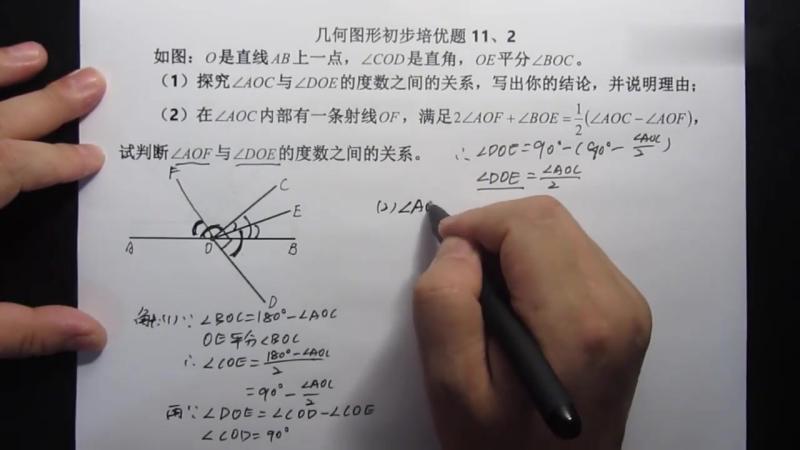 几何图形初步培优题 11、2
如图：O是直线AB上一点，∠COD是直角，OE平分∠BOC。
（1）探究∠AOC与∠DOE的度数之间的关系，写出你的结论，并说明理由；
（2）在∠AOC内部有一条射线OF，满足2∠AOF+∠BOE=1/2(∠AOC-∠AOF)，
试判断∠AOF与∠DOE的度数之间的关系。
∴∠DOE=90°-(90°-∠AOC/2)
∠DOE=∠AOC/2
F
C
E
A
O
B
D
(2)∠AO
(1)∵∠BOC=180°-∠AOC
OE平分∠BOC
∴∠COE=180°-∠AOC/2
=90°-∠AOC/2
∵∠DOE=∠COD-∠COE
∠COD=90°